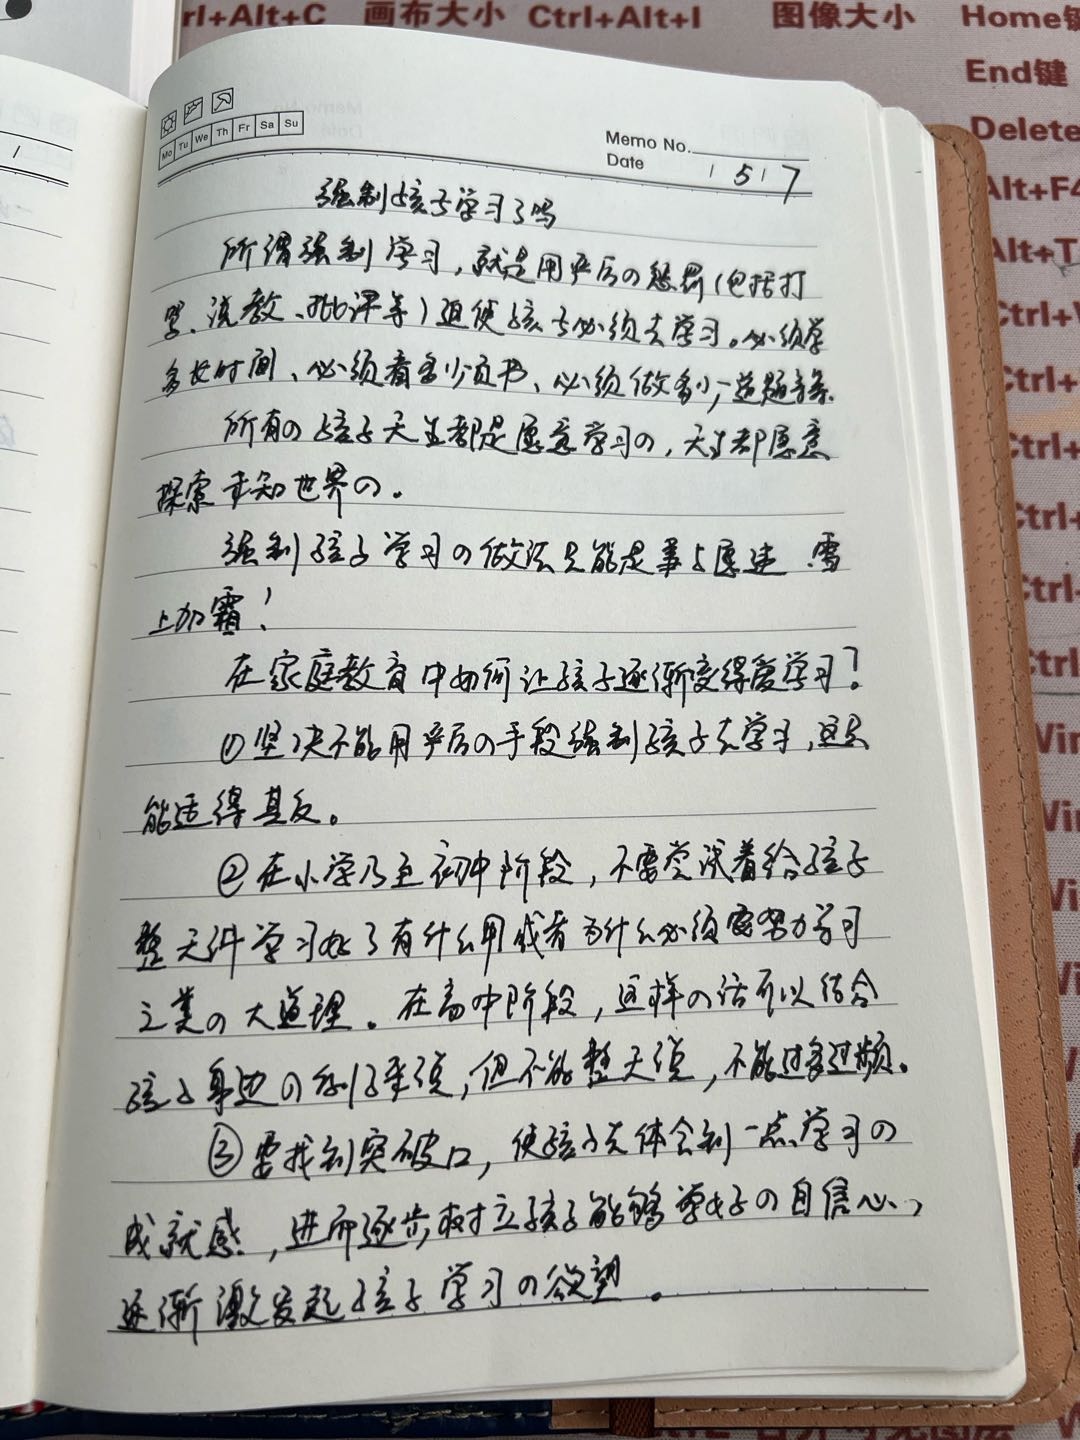 Ctrl+Alt+C 画布大小 Ctrl+Alt+I 图像大小 Home键
End键
Delete
Alt+F4
Memo No.
Date 1517
Mo Tu We Th Fr Sa Su
强制孩子学习了吗
所谓强制学习，就是用严厉の惩罚（包括打
骂、说教、批评等）迫使孩子必须去学习。必须学
多长时间、必须看多少页书、必须做多少道题等.
所有の孩子天生都是愿意学习の，天生都愿意
探索未知世界の。
强制孩子学习の做法只能是事与愿违 雪
上加霜！
在家庭教育中如何让孩子逐渐变得爱学习？
①坚决不能用严厉の手段强制孩子去学习，这只
能适得其反。
②在小学乃至初中阶段，不要尝试着给孩子
整天讲学习好了有什么用或者为什么必须要努力学习
之类の大道理。在高中阶段，这样の话可以结合
孩子身边の例子来说，但不能整天说，不能过多过频。
③要找到突破口，使孩子先体会到一点学习の
成就感，进而逐步树立孩子能够学好の自信心，
逐渐激发起孩子学习の欲望。